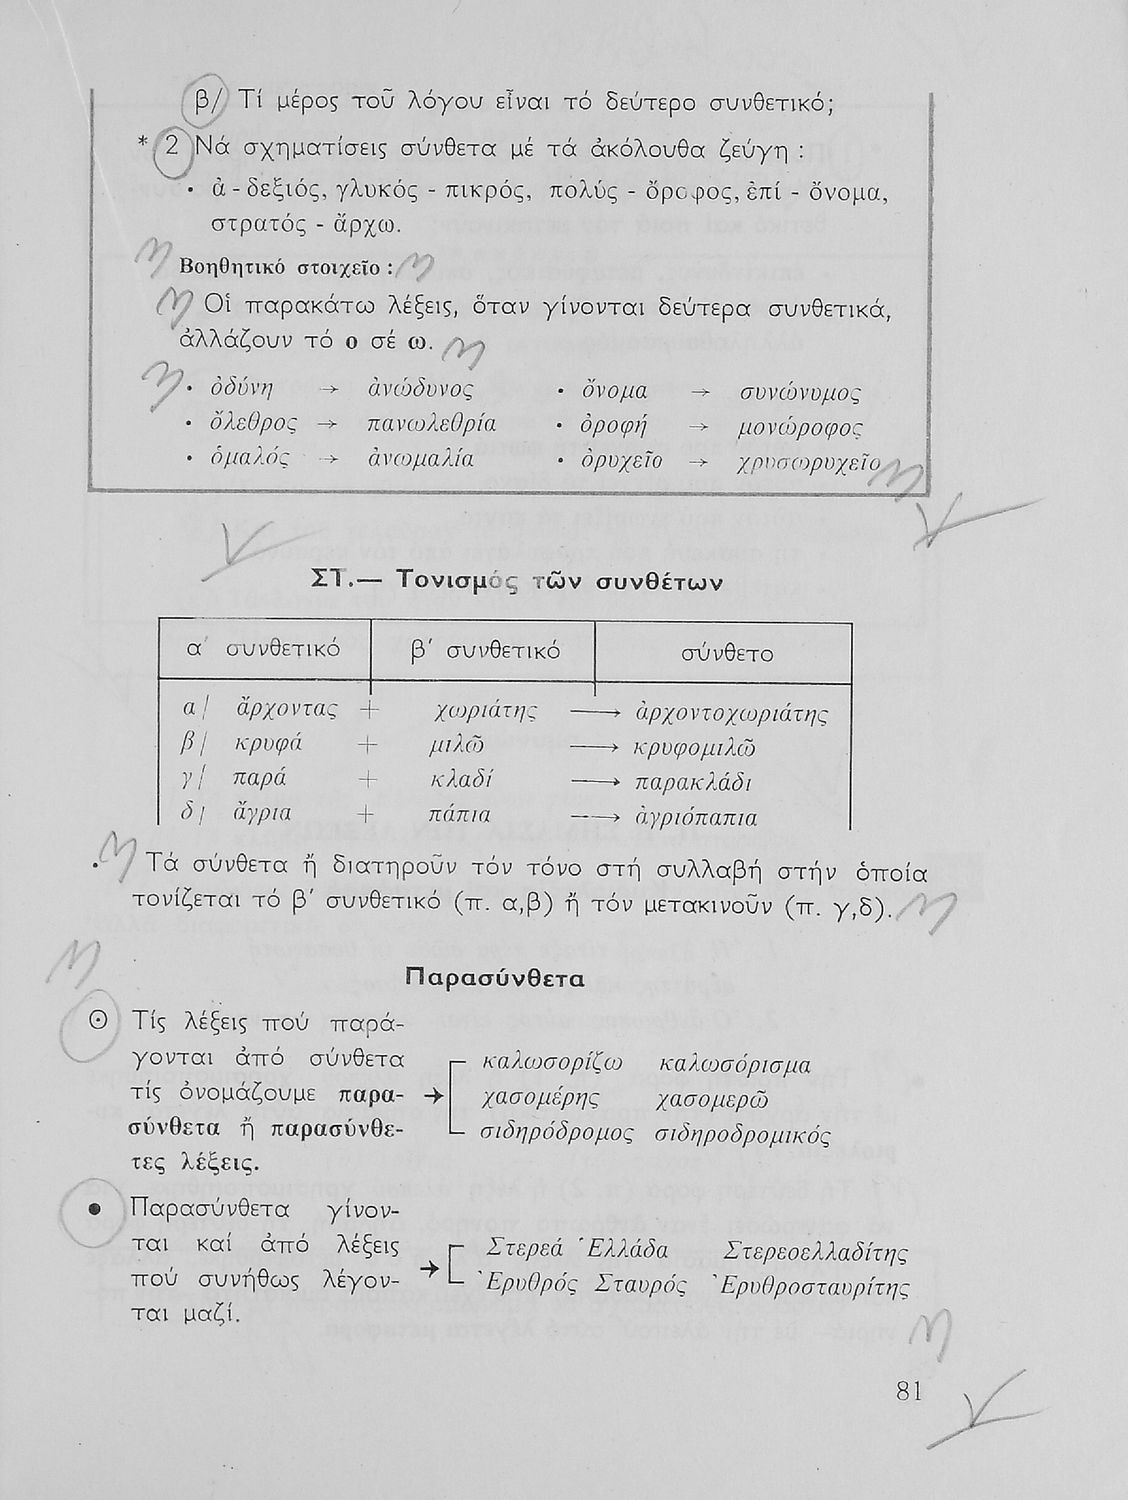 β/ Τί μέρος τοῦ λόγου εἶναι τό δεύτερο συνθετικό;
* 2 Νά σχηματίσεις σύνθετα μέ τά ἀκόλουθα ζεύγη :
· ἀ - δεξιός, γλυκός - πικρός, πολύς - ὄροφος, ἐπί - ὄνομα,
στρατός - ἄρχω.
Βοηθητικό στοιχεῖο :
Οἱ παρακάτω λέξεις, ὅταν γίνονται δεύτερα συνθετικά,
ἀλλάζουν τό ο σέ ω.
· ὀδύνη → ἀνώδυνος · ὄνομα → συνώνυμος
· ὄλεθρος → πανωλεθρία · ὀροφή → μονώροφος
· ὁμαλός → ἀνωμαλία · ὀρυχεῖο → χρυσωρυχεῖο
ΣΤ.— Τονισμός τῶν συνθέτων
α΄ συνθετικό β΄ συνθετικό σύνθετο
α/ ἄρχοντας + χωριάτης → ἀρχοντοχωριάτης
β/ κρυφά + μιλῶ → κρυφομιλῶ
γ/ παρά + κλαδί → παρακλάδι
δ/ ἄγρια + πάπια → ἀγριόπαπια
· Τά σύνθετα ἤ διατηροῦν τόν τόνο στή συλλαβή στήν ὁποία
τονίζεται τό β΄ συνθετικό (π. α,β) ἤ τόν μετακινοῦν (π. γ,δ).
Παρασύνθετα
⊙ Τίς λέξεις πού παρά-
γονται ἀπό σύνθετα
τίς ὀνομάζουμε παρα-
σύνθετα ἤ παρασύνθε-
τες λέξεις.
→ καλωσορίζω καλωσόρισμα
χασομέρης χασομερῶ
σιδηρόδρομος σιδηροδρομικός
● Παρασύνθετα γίνον-
ται καί ἀπό λέξεις
πού συνήθως λέγον-
ται μαζί.
→ Στερεά Ἑλλάδα Στερεοελλαδίτης
Ἐρυθρός Σταυρός Ἐρυθροσταυρίτης
81